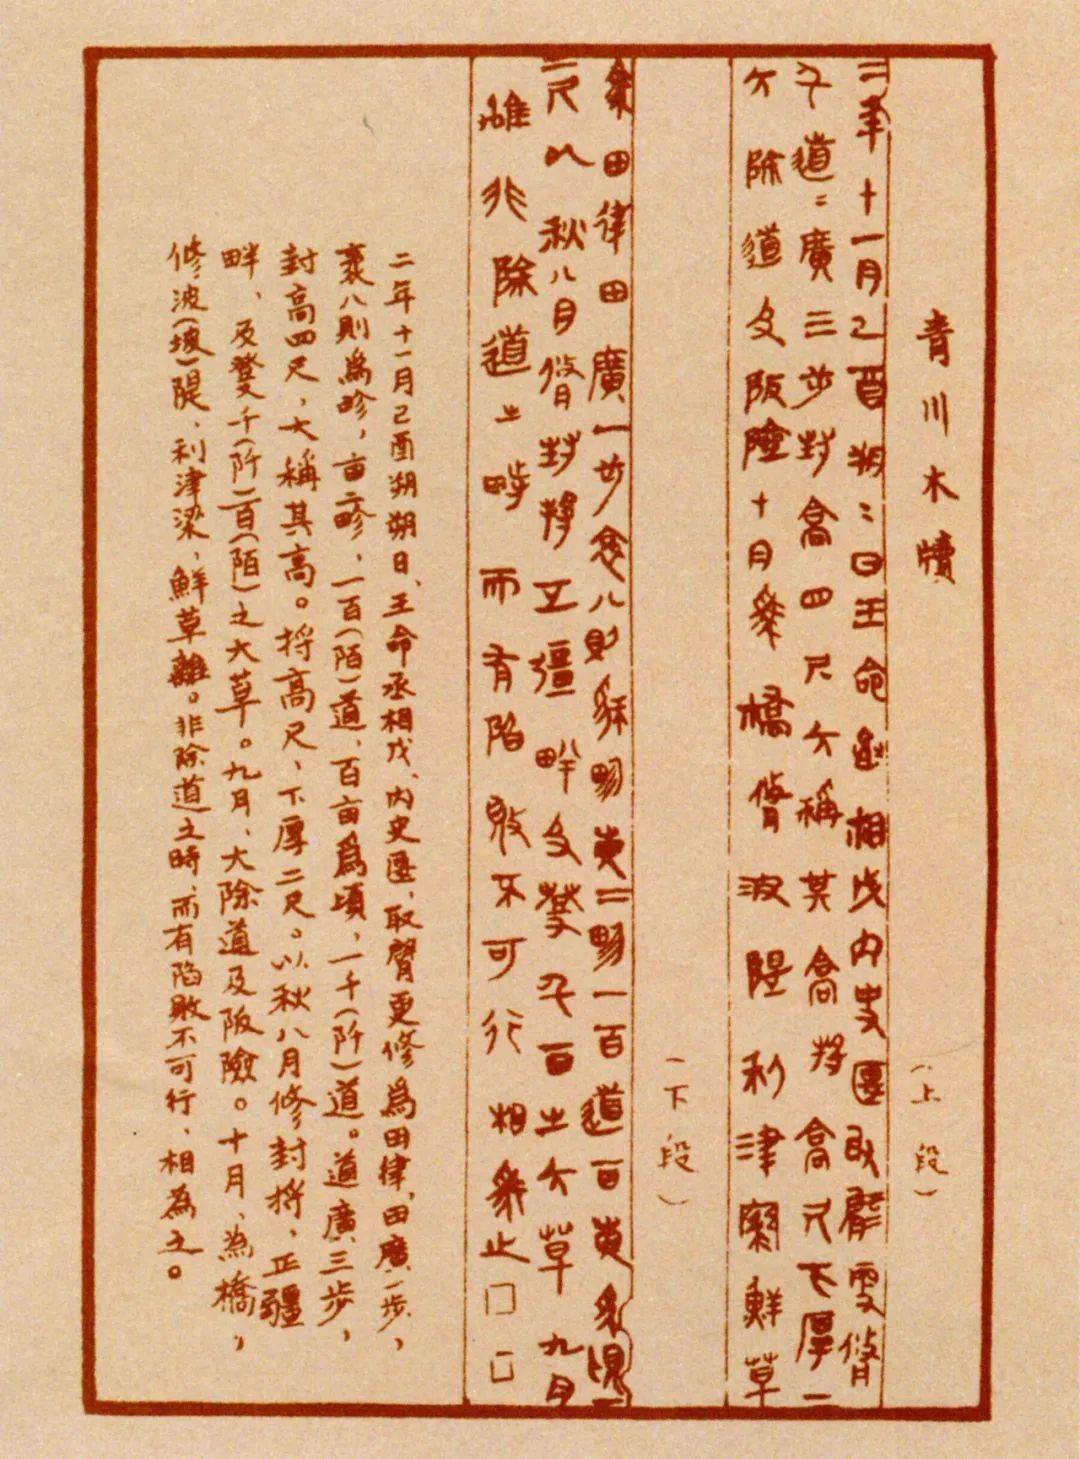 青川木牘
(上段)
二年十一月己酉朔〻日王命丞相戊内史匽取臂更脩
千道〻廣三步封高四尺大稱其高捋高尺下厚一
大除道及阪險十月爲橋脩波隄利津梁鮮草
(下段)
爲田律田廣一步袤八則爲畛畝二畛一百道百畝爲頃一
二尺以秋八月脩封捋正彊畔及癹千百之大草九月
雖非除道之時而有陷敗不可行相爲之□□
二年十一月己酉朔朔日、王命丞相戊、内史匽,取臂更修爲田律、田廣一步,
袤八則爲畛,亩二畛,一百(陌)道、百亩爲頃,一千(阡)道。道廣三步,
封高四尺,大稱其高。捋高尺、下厚二尺。以秋八月修封捋,正疆
畔,及癹千(阡)百(陌)之大草。九月、大除道及阪險。十月、為橋,
修波(坡)隄、利津梁、鮮草離。非除道之時、而有陷敗不可行、相為之。